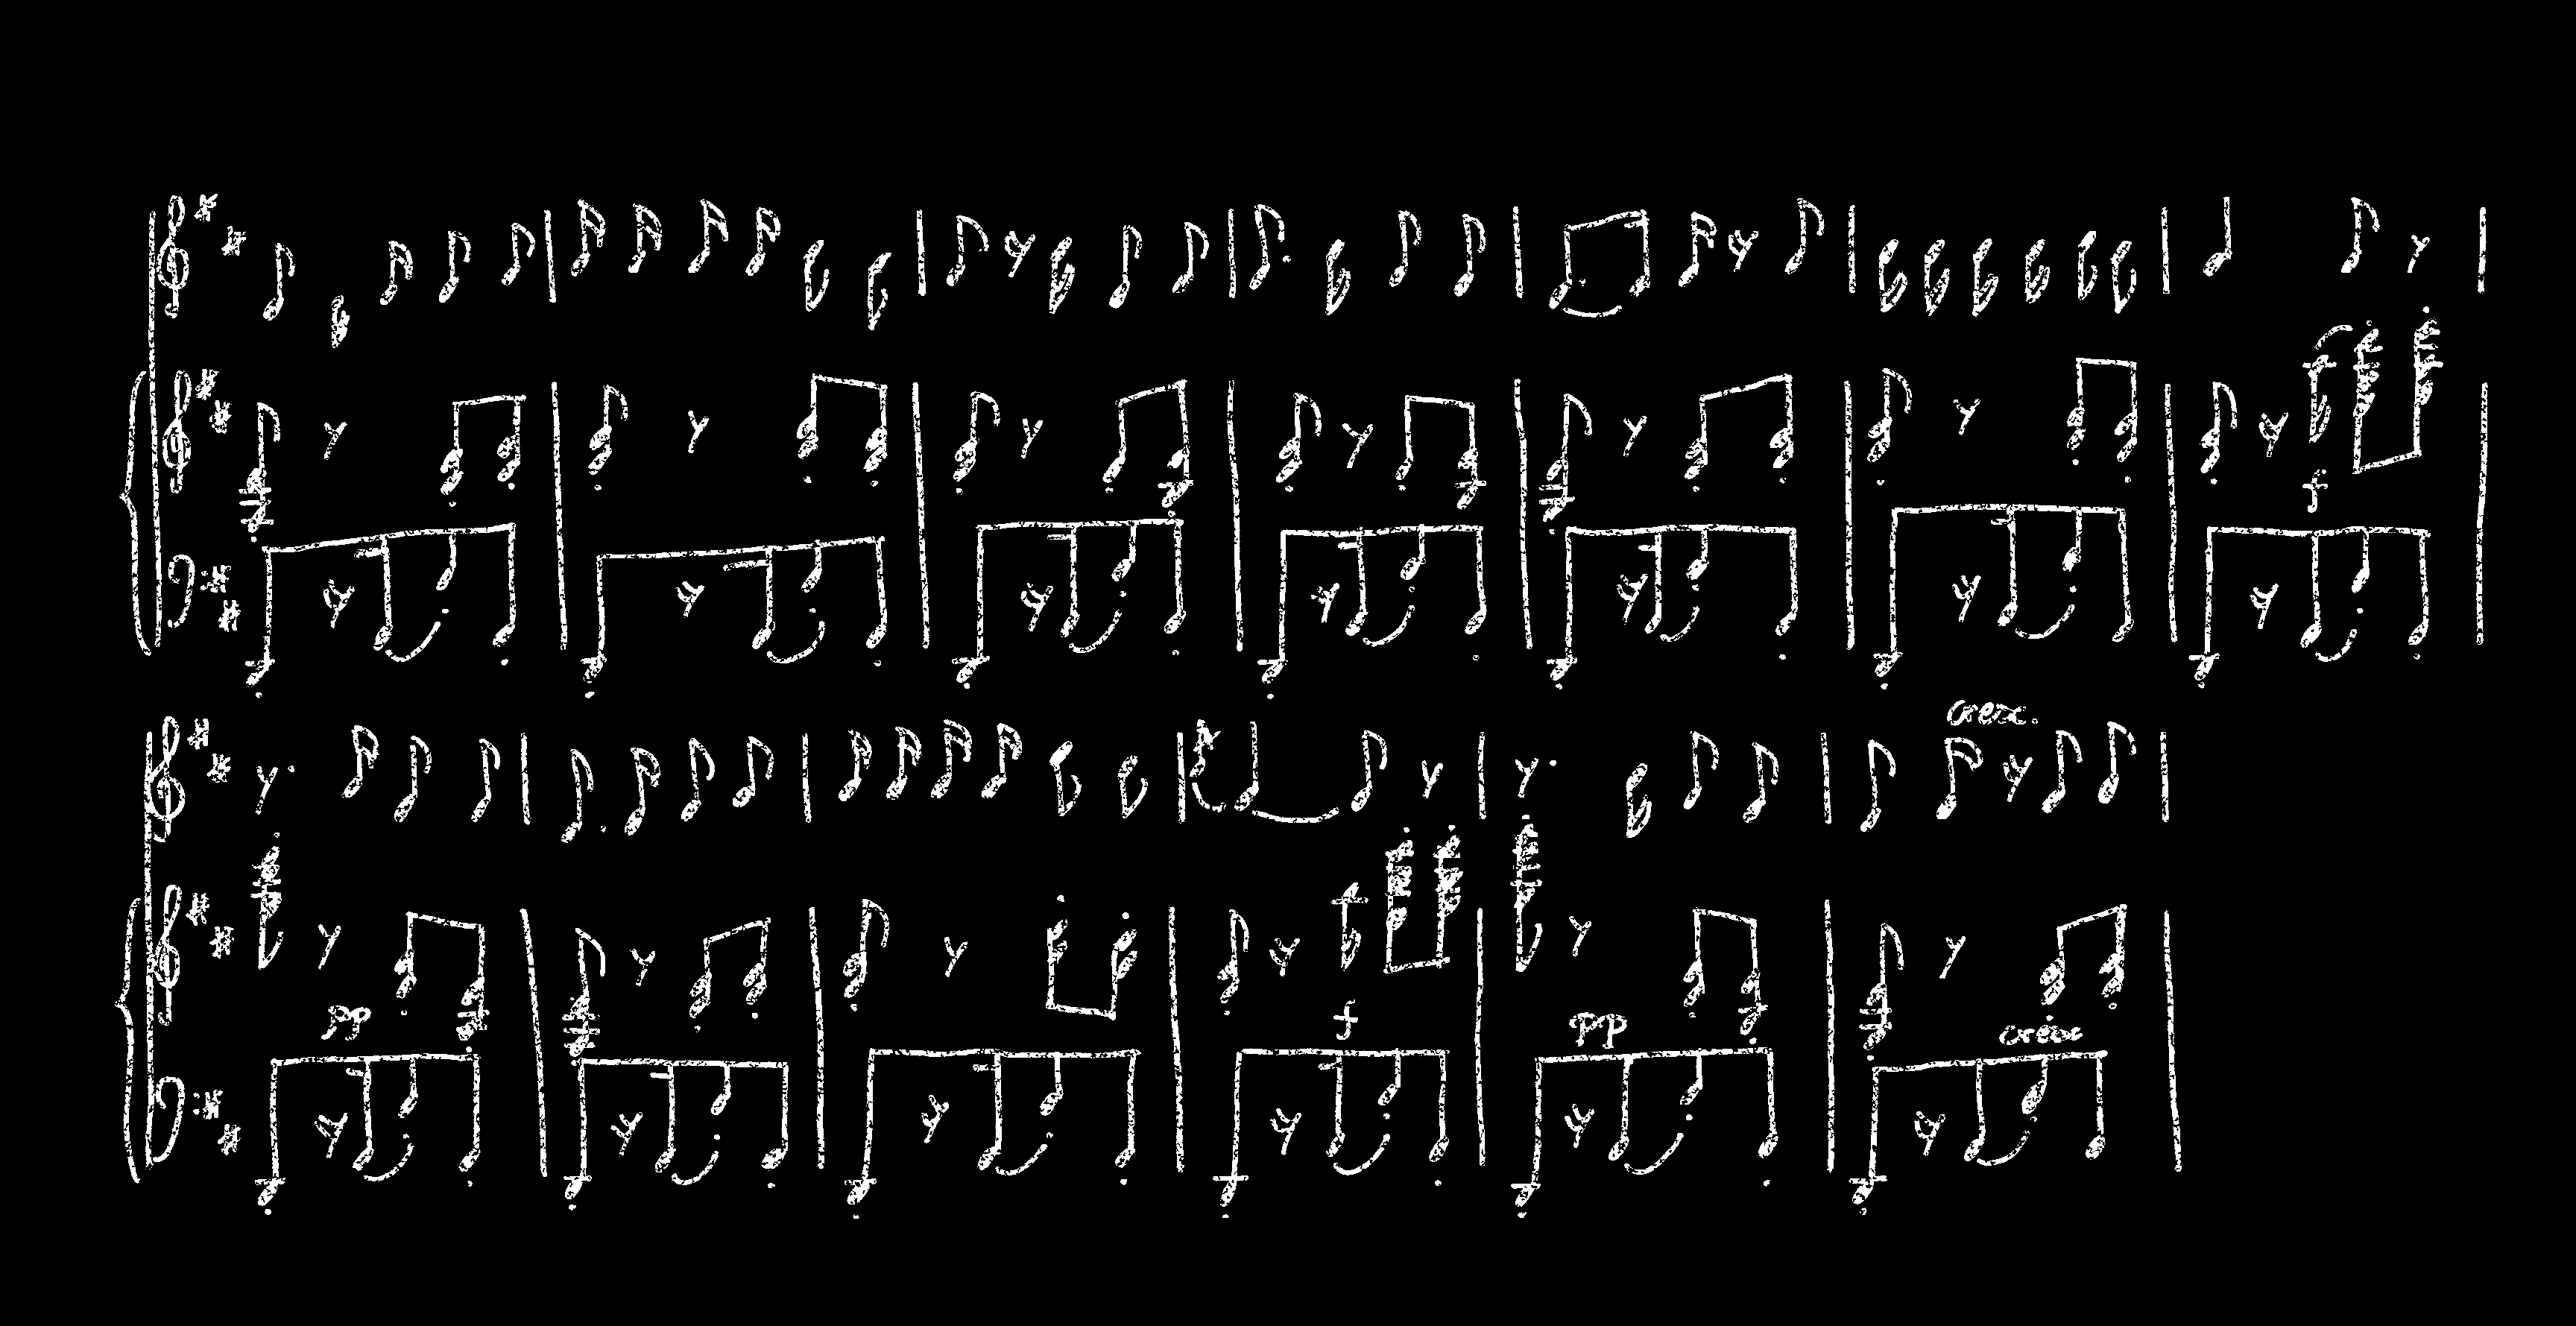 f
cresc.
pp
f
pp
cresc